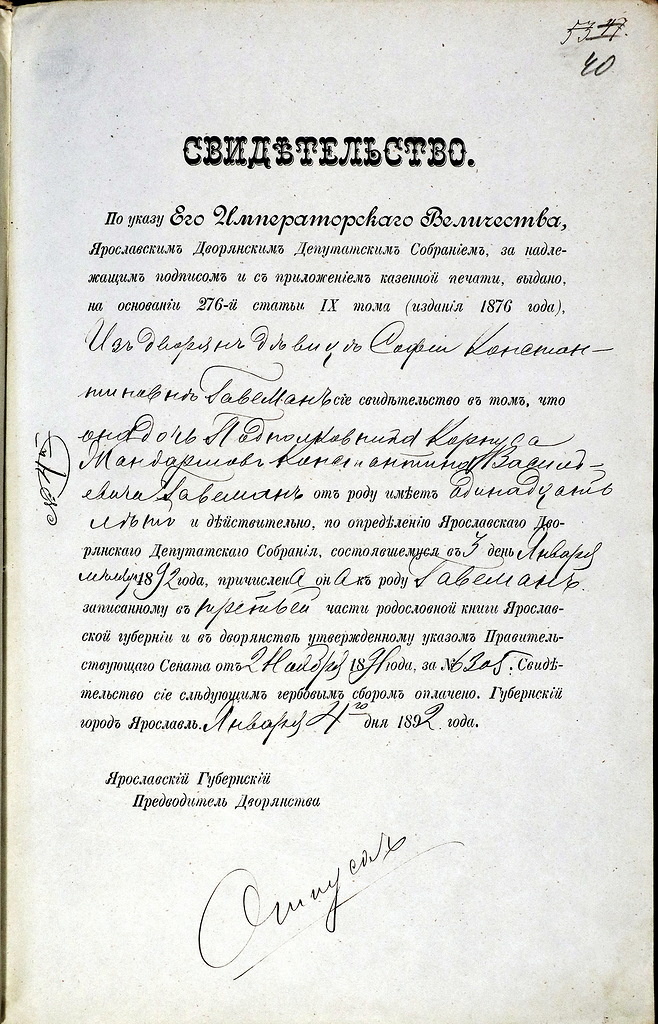 53 47.
40
СВИДѢТЕЛЬСТВО.
По указу Его Императорскаго Величества,
Ярославскимъ Дворянскимъ Депутатскимъ Собраніемъ, за надле-
жащимъ подписомъ и съ приложеніемъ казенной печати, выдано,
на основаніи 276-й статьи IX тома (изданія 1876 года),
Изъ дворянъ дѣвицѣ Софіи Констан-
тиновнѣ Гавеманъ сіе свидѣтельство въ томъ, что
она дочь Подполковника Корпуса
Жандармовъ Константина Василь-
евича Гавеманъ отъ роду имѣетъ одинадцать
лѣтъ и дѣйствительно, по опредѣленію Ярославскаго Дво-
рянскаго Депутатскаго Собранія, состоявшемуся въ 3 день Января
мѣсяца 1892 года, причислена она къ роду Гавеманъ
записанному въ третьей части родословной книги Ярослав-
ской губерніи и въ дворянствѣ утвержденному указомъ Правитель-
ствующаго Сената отъ 2 Ноября 1891 года, за № 6305. Свидѣ-
тельство сіе слѣдующимъ гербовымъ сборомъ оплачено. Губернскій
городъ Ярославль. Января 4го дня 1892 года.
Ярославскій Губернскій
Предводитель Дворянства
Отпускъ